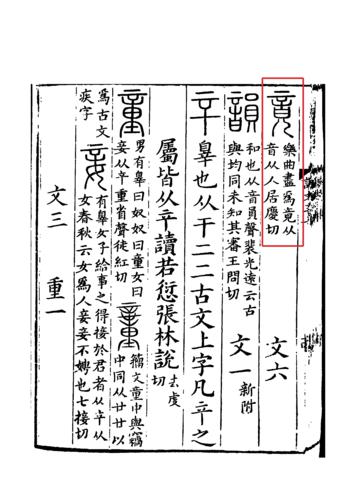 竟 樂曲盡爲竟从
音从人居慶切
文六
韻 和也从音員聲裴光遠云古
與均同未知其審王問切
文一 新附
䇂 辠也从干二二古文上字凡䇂之
屬皆从䇂讀若愆張林說 去虔切
童 男有辠曰奴奴曰童女曰
妾从䇂重省聲徒紅切
童 籒文童中與竊
中同从廿廿以
爲古文
疾字
妾 有辠女子給事之得接於君者从䇂从
女春秋云女爲人妾妾不娉也七接切
文三 重一